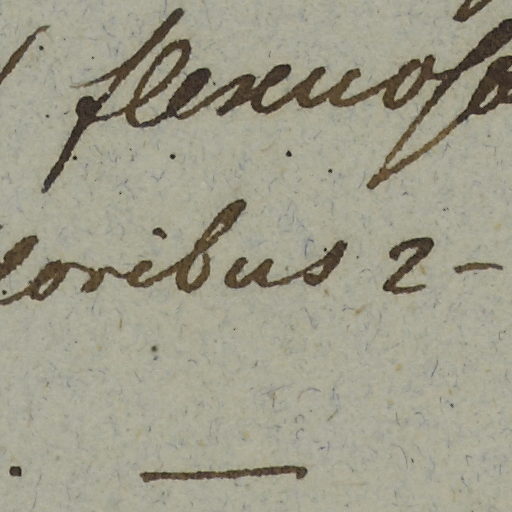 flexuoſo
loribus 2-